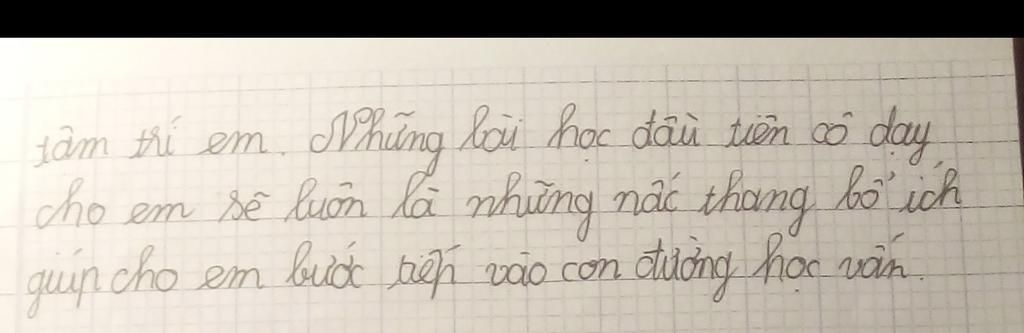 tâm trí em. Những bài học đầu tiên cô dạy
cho em sẽ luôn là những nấc thang bổ ích
giúp cho em bước tiếp vào con đường học vấn.